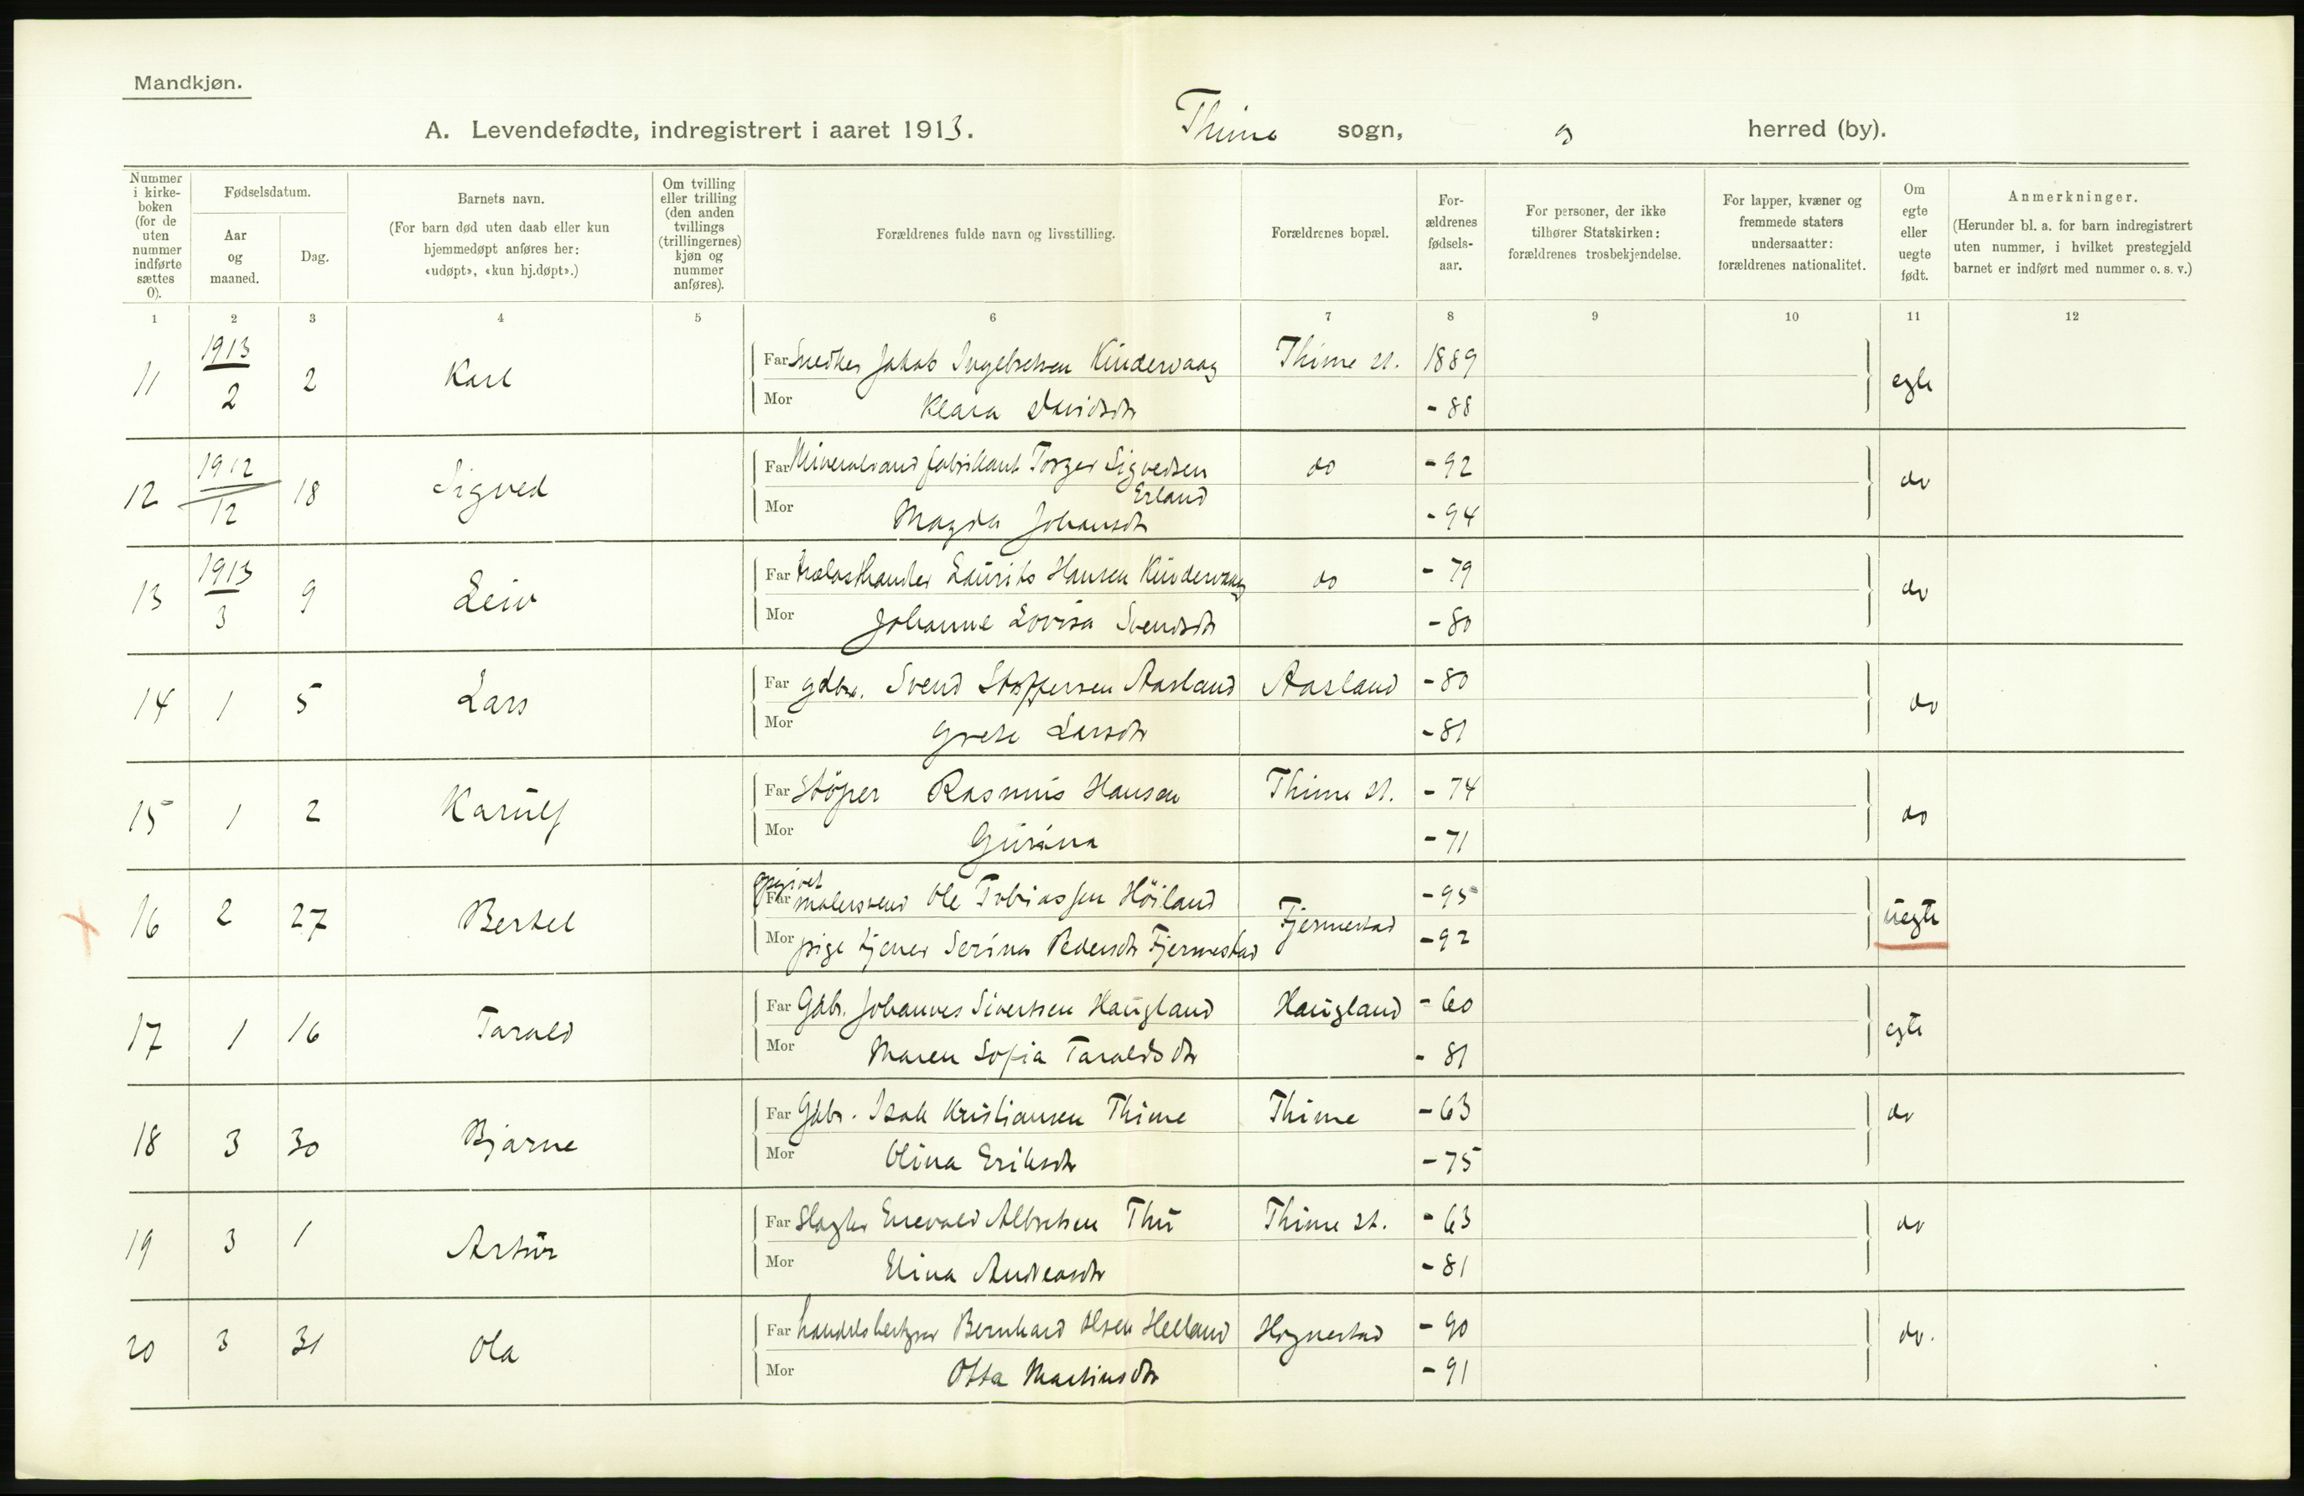 Mandkjøn.
A. Levendefødte, indregistrert i aaret 1913. Thime sogn, herred (by).
Nummer i kirke- boken (for de uten nummer indførte sættes 0).
Fødselsdatum.
Aar og maaned.
Dag.
Barnets navn.
(For barn død uten daab eller kun hjemmedøpt anføres her: «udøpt», «kun hj.døpt».)
Om tvilling eller trilling (den anden tvillings (trillingernes) kjøn og nummer anføres).
Forældrenes fulde navn og livsstilling.
Forældrenes bopæl.
For- ældrenes fødsels- aar.
For personer, der ikke tilhører Statskirken: forældrenes trosbekjendelse.
For lapper, kvæner og fremmede staters undersaatter: forældrenes nationalitet.
Om egte eller uegte født.
Anmerkninger.
(Herunder bl. a. for barn indregistrert uten nummer, i hvilket prestegjeld barnet er indført med nummer o. s. v.)
1 2 3 4 5 6 7 8 9 10 11 12
11 1913/2 2 Karl Far Snedker Jakob Ingebretsen Kindervaag Thime st. 1889 egte
Mor Klara Davidsdtr -88
12 1912/12 18 Sigved Far Mineralvandfabrikant Torger Sigvedsen Erland do -92 do
Mor Magda Johansdtr -94
13 1913/3 9 Leiv Far trælasthandler Laurits Hansen Kindervaag do -79 do
Mor Johanne Lovisa Svendsdtr -80
14 1 5 Lars Far gdbr. Svend Stoffersen Aasland Aasland -80 do
Mor Grete Larsdtr -81
15 1 2 Karulf Far Støper Rasmus Hansen Thime st. -74 do
Mor Gurina -71
16 2 27 Bertel opgivet Far malersvend Ole Tobiassen Höiland Fjermestad -95 uegte
Mor pige tjener Serina Pedersdtr Fjermestad -92
17 1 16 Tarald Far Gdbr. Johannes Sivertsen Haugland Haugland -60 egte
Mor Maren Sofia Taraldsdtr -81
18 3 30 Bjarne Far Gdbr. Isak Kristiansen Thime Thime -63 do
Mor Olina Eriksdtr -75
19 3 1 Artur Far Slagter Enevald Albretsen Thu Thime st. -63 do
Mor Elina Andreasdtr -81
20 3 31 Ola Far handelsbestyrer Bernhard Olsen Helland Hognestad -90 do.
Mor Otta Martinsdtr -91